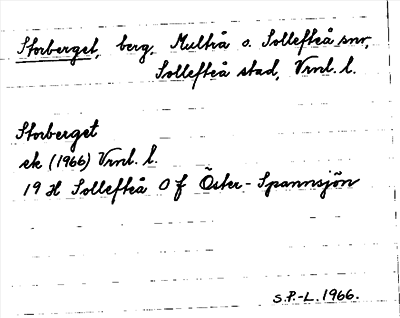 Storberget, berg, Multrå o. Sollefteå snr,
Sollefteå stad, Vrml. l.
Storberget
ek (1966) Vrml. l.
19 H Sollefteå O f Öster-Spannsjön
S.P.-L. 1966.